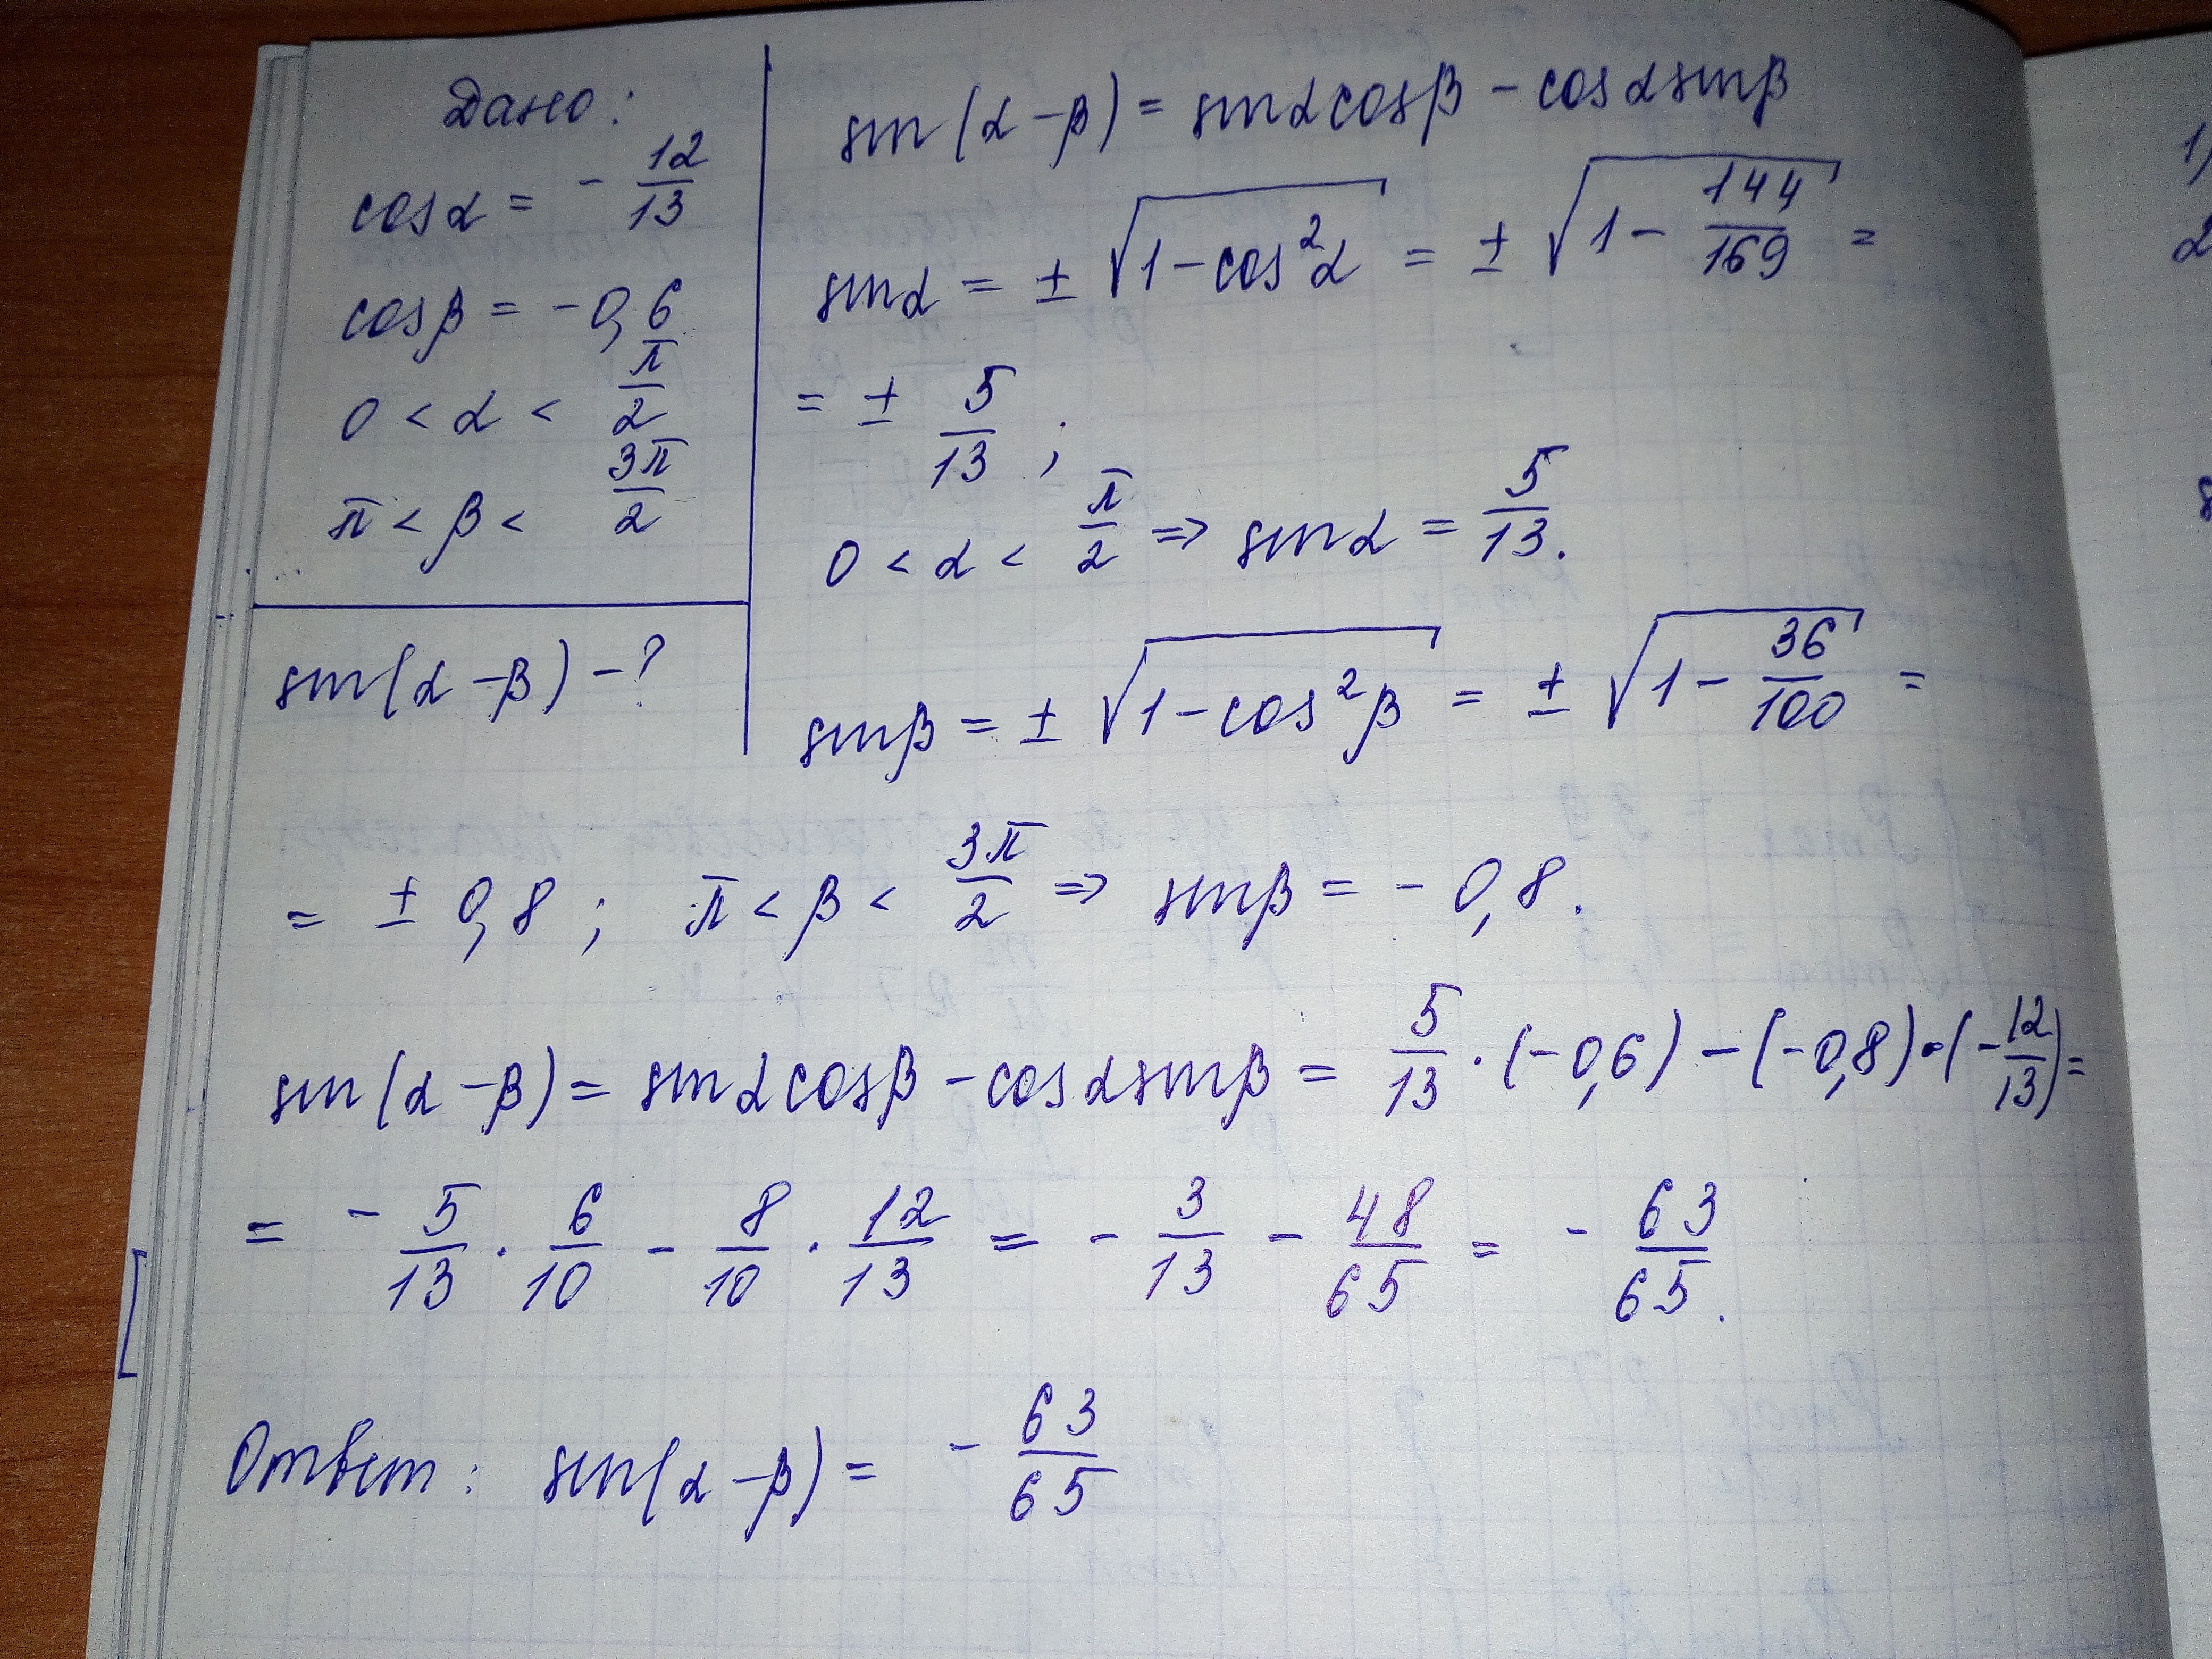 Дано:
cosα = - 12/13
cosβ = -0,6
0 < α < π/2
π < β < 3π/2
sin(α-β) - ?
sin(α-β) = sinαcosβ - cosαsinβ
sinα = ± √(1-cos²α) = ± √(1 - 144/169) =
= ± 5/13 ;
0 < α < π/2 => sinα = 5/13.
sinβ = ± √(1-cos²β) = ± √(1 - 36/100) =
= ± 0,8 ; π < β < 3π/2 => sinβ = - 0,8.
sin(α-β) = sinαcosβ - cosαsinβ = 5/13 · (-0,6) - (-0,8) · (-12/13) =
= - 5/13 · 6/10 - 8/10 · 12/13 = - 3/13 - 48/65 = - 63/65.
Ответ: sin(α-β) = - 63/65
1)
2